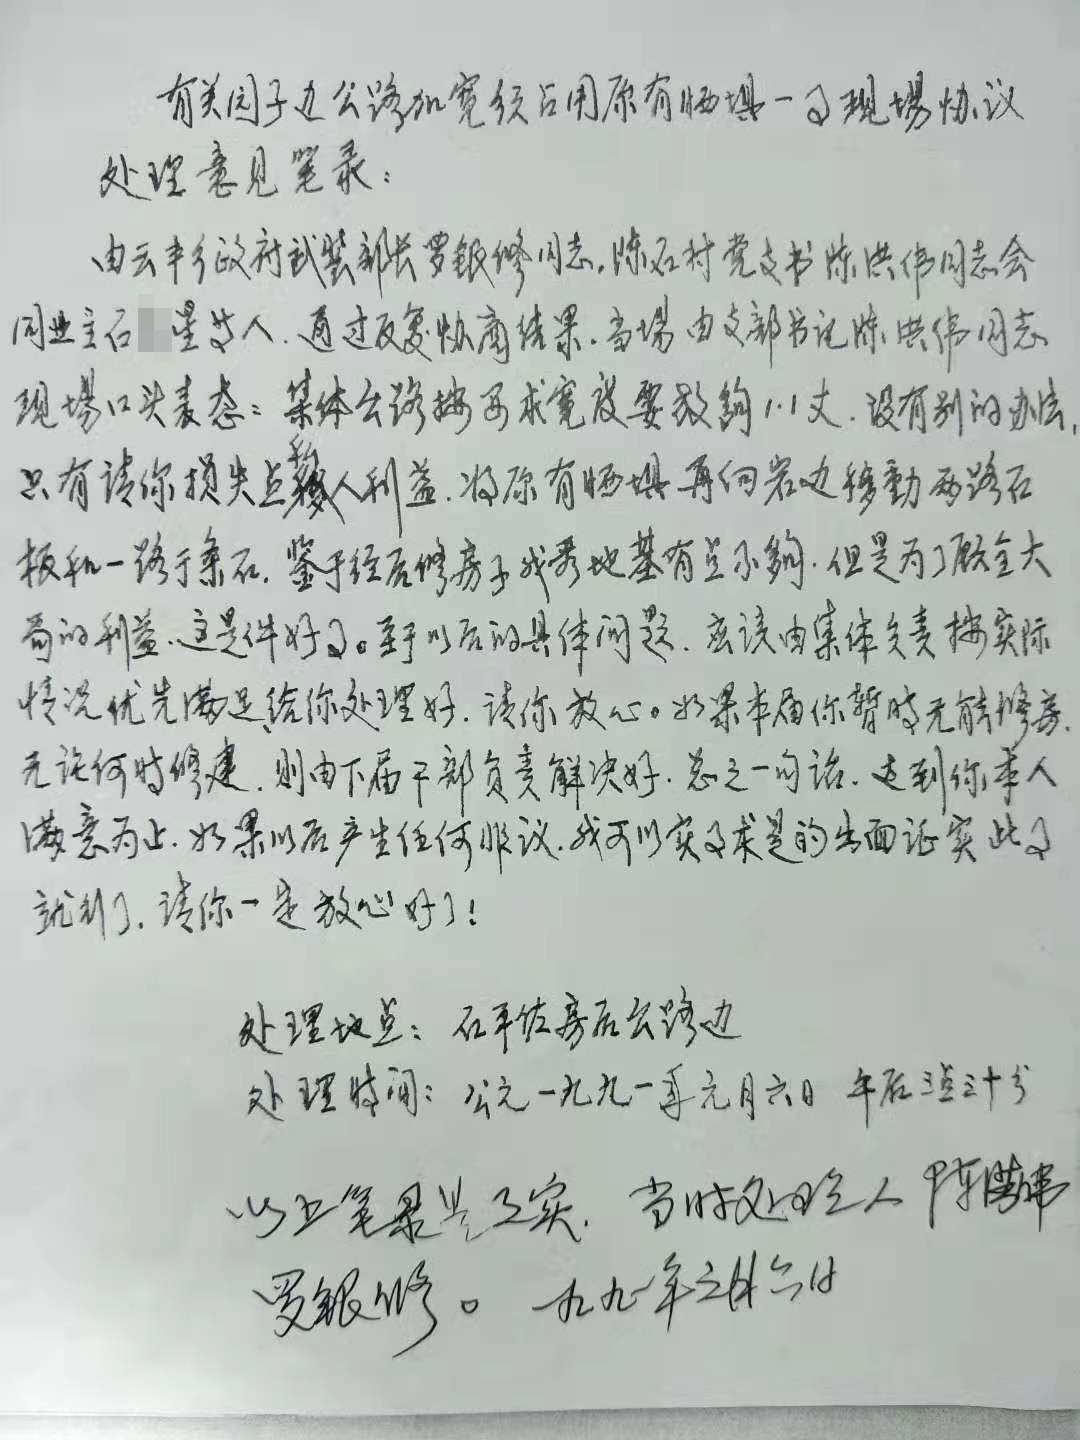 有关园子边公路加宽须占用原有晒坝一事现场协议
处理意见笔录：
由云丰乡政府武装部长罗银修同志，陈石村党支书陈洪伟同志会
同业主石 星等人．通过反复协商结果．当场由支部书记陈洪伟同志
现场口头表态：集体公路按要求宽度要放夠1.1丈．没有别的办法，
只有请你损失点私人利益．将原有晒坝再向岩边移動两路石
板和一路于条石．鉴于经后修房子或者地基有点不夠．但是为了顾全大
局的利益．这是件好事。至于以后的具体问题．应该由集体负责按实际
情况优先满足给你处理好．请你放心。如果本届你暂时无能修房．
无论何时修建．则由下届干部负责解决好．总之一句话．达到你本人
满意为止．如果以后产生任何非议．我可以实事求是的出面证实此事
就行了．请你一定放心好了！
处理地点：石平佐房后公路边
处理时间：公元一九九一年元月六日 午后三点三十分
以上笔录是事实． 当时处理人 陈洪伟
罗银修。 一九九一年元月六日